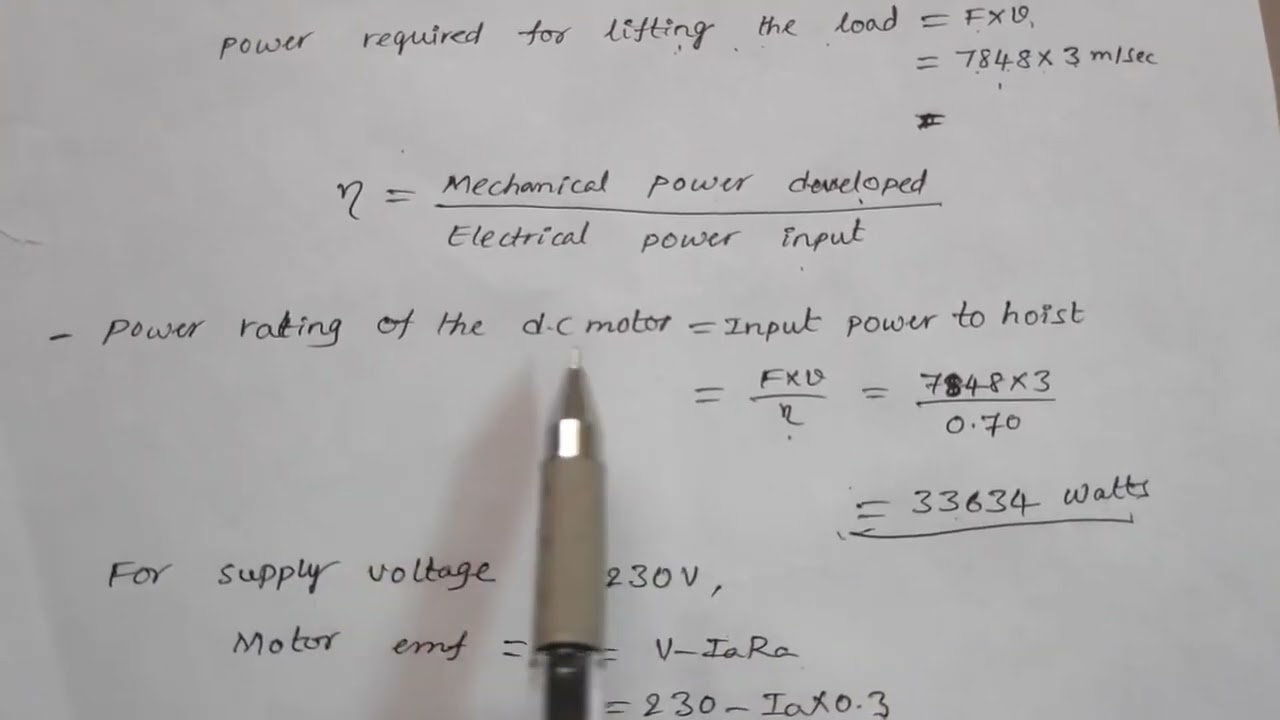 power required for lifting the load = F×υ.
= 7848 × 3 m/sec
=
η = Mechanical power developed
Electrical power input
- power rating of the d.c motor = Input power to hoist
= F×υ / η = 7848×3 / 0.70
= 33634 watts
For supply voltage 230V,
Motor emf = = V-IaRa
= 230 - Ia×0.3